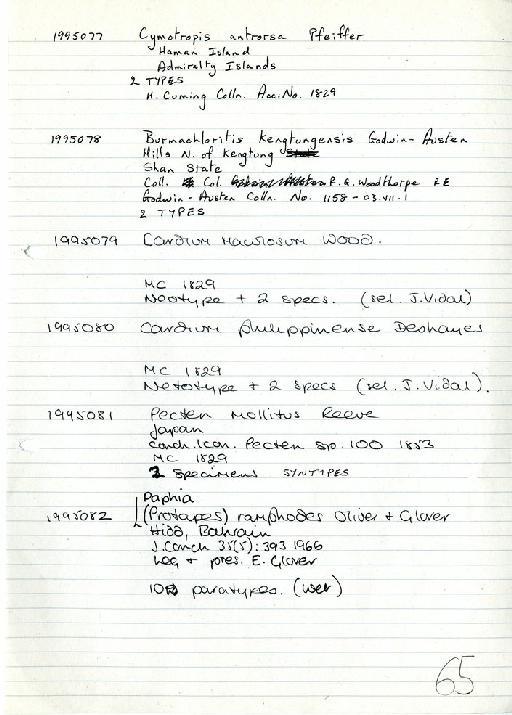 1995077 Cymotropis antrorsa Pfeiffer
Haman Island
Admiralty Islands
2 TYPES
H. Cuming Colln. Acc. No. 1829
1995078 Burmachloritis kengtungensis Godwin-Austen
Hills N. of Kengtung
Shan State
Coll. Col. R. G. Woodthorpe RE
Godwin-Austen Colln. No. 1158-03.VII.1
2 TYPES
1995079 Cardium maculosum WOOD.
MC 1829
Neotype + 2 specs. (sel. J. Vidal)
1995080 Cardium philippinense Deshayes
MC 1829
Neotype + 2 specs (sel. J. Vidal).
1995081 Pecten mollitus Reeve
Japan
Conch. Icon. Pecten sp. 100 1853
MC 1829
2 specimens SYNTYPES
Paphia
1995082 (Protapes) ramphodes Oliver + Glover
Hidd, Bahrain
J. Conch 35(5): 393 1966
Leg + pres. E. Glover
10 paratypes. (wet)
65